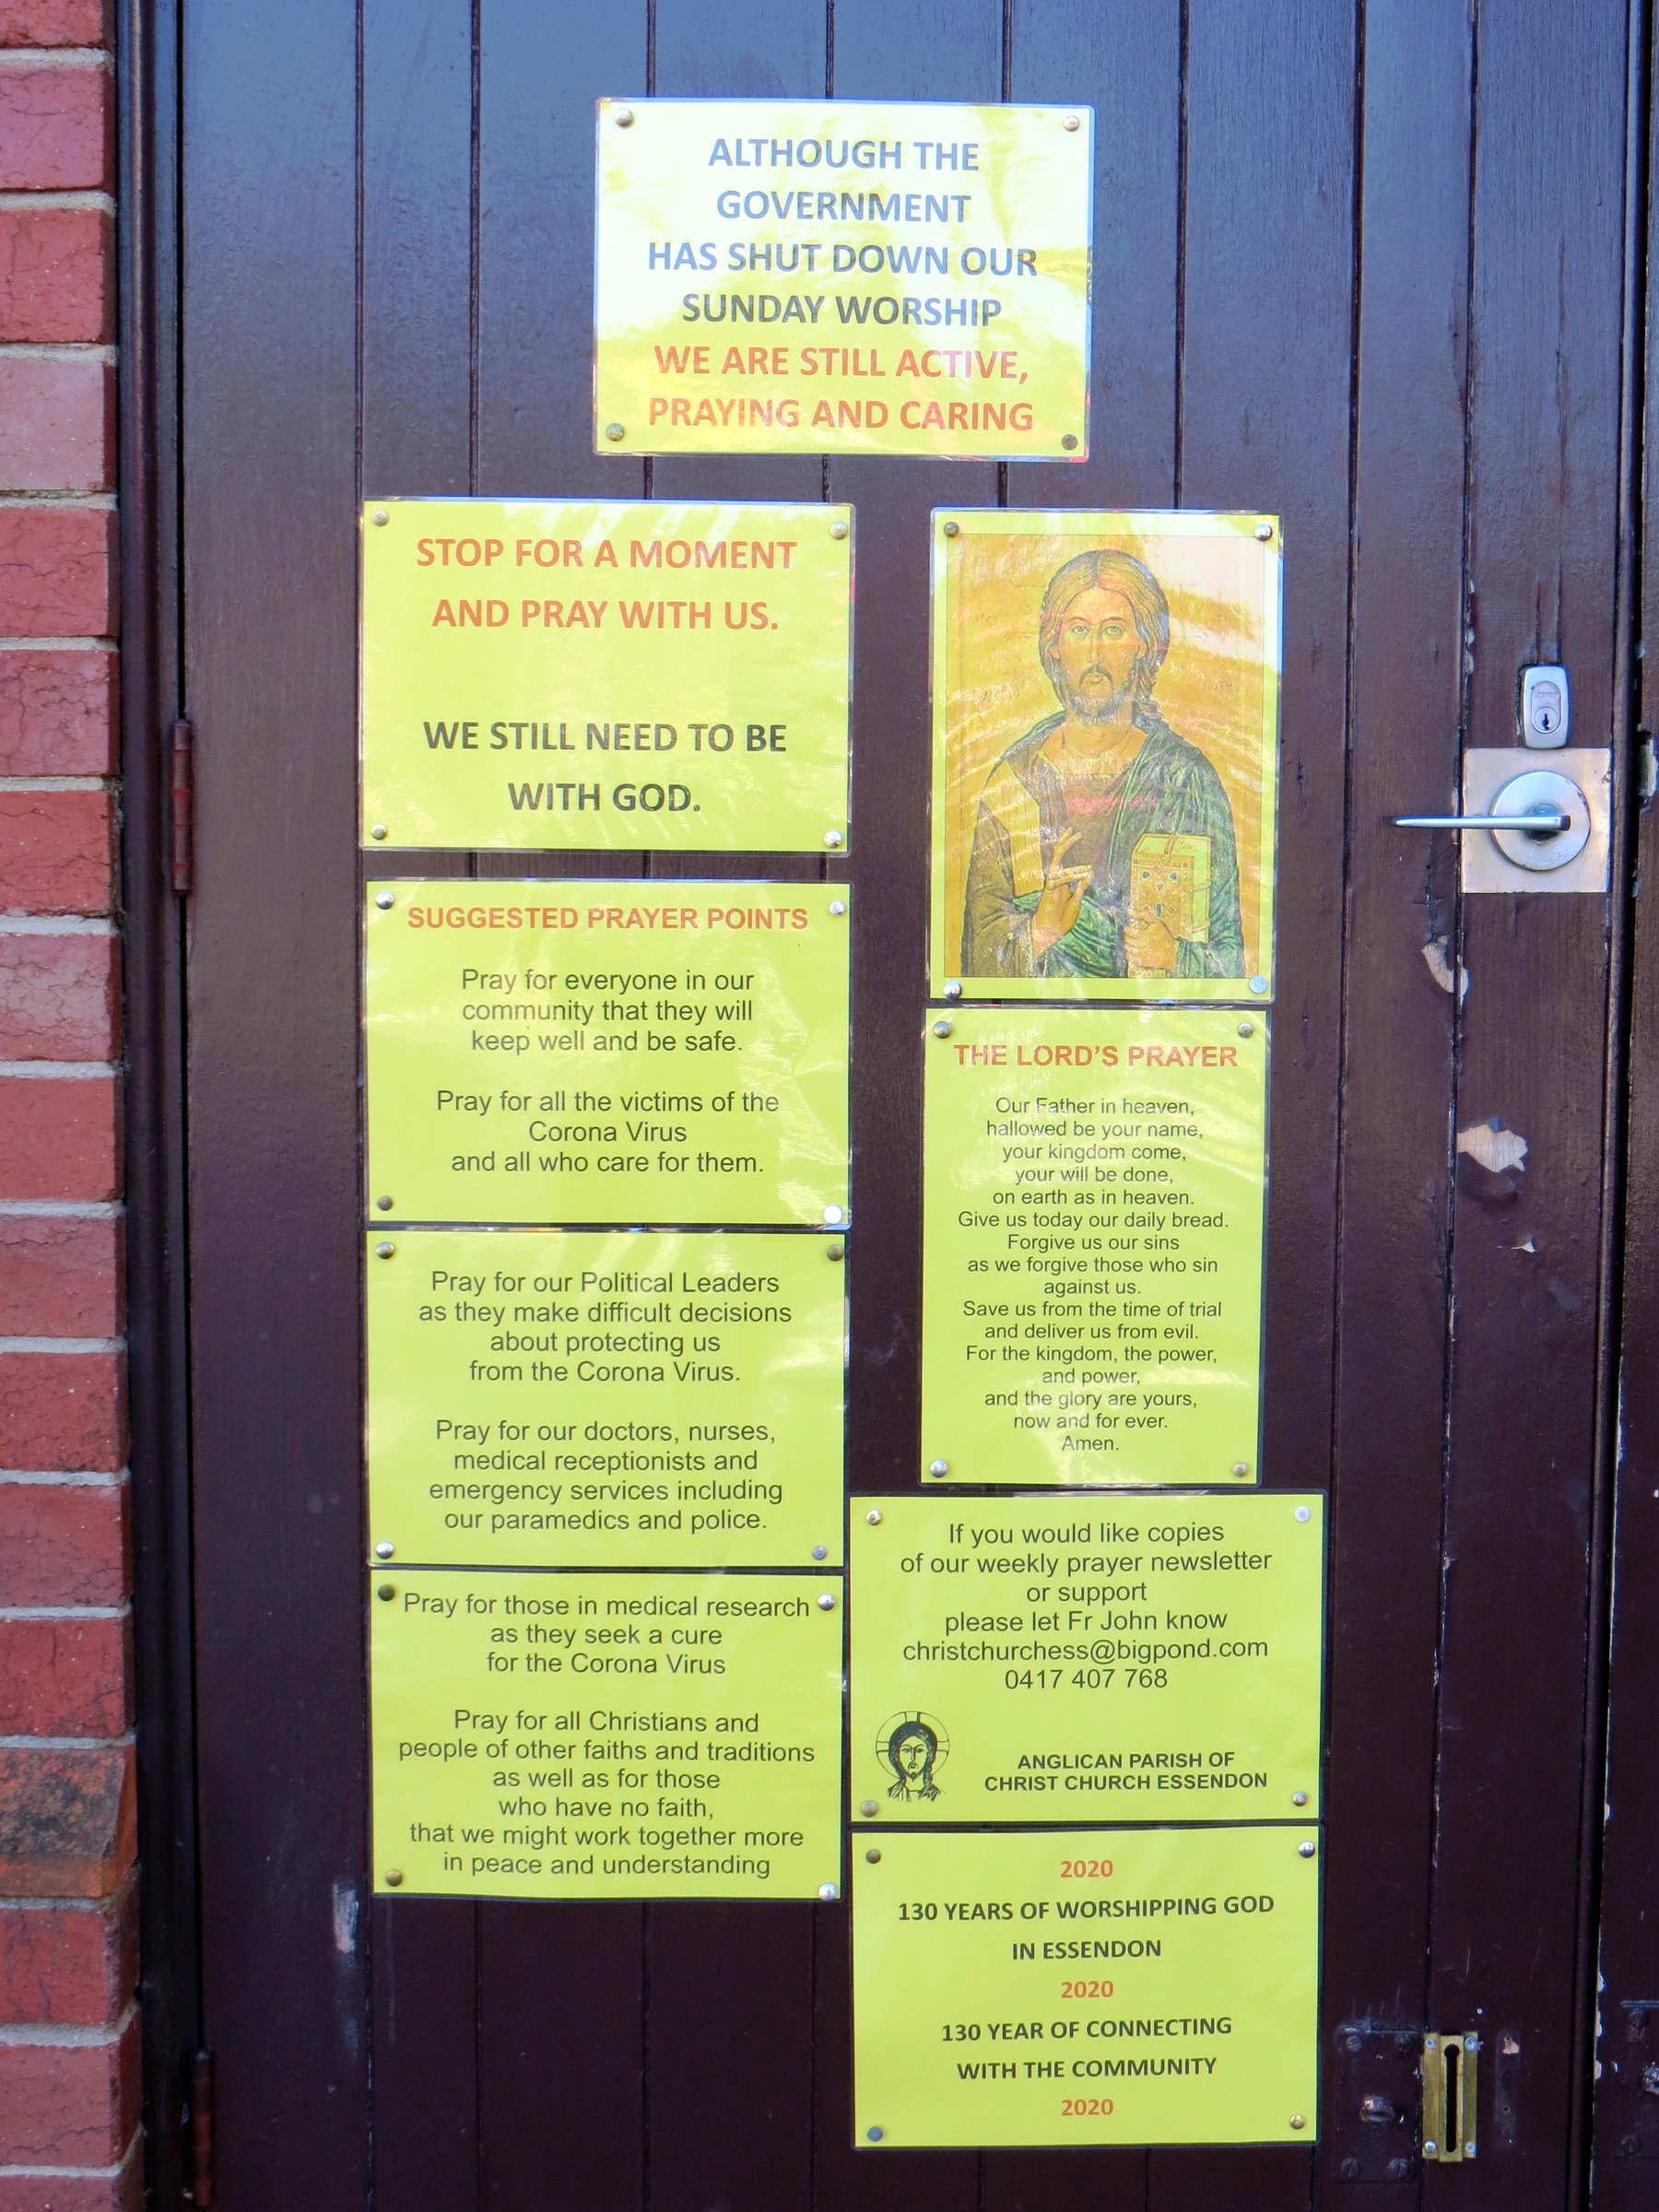 ALTHOUGH THE
GOVERNMENT
HAS SHUT DOWN OUR
SUNDAY WORSHIP
WE ARE STILL ACTIVE,
PRAYING AND CARING
STOP FOR A MOMENT
AND PRAY WITH US.
WE STILL NEED TO BE
WITH GOD.
SUGGESTED PRAYER POINTS
Pray for everyone in our
community that they will
keep well and be safe.
Pray for all the victims of the
Corona Virus
and all who care for them.
Pray for our Political Leaders
as they make difficult decisions
about protecting us
from the Corona Virus.
Pray for our doctors, nurses,
medical receptionists and
emergency services including
our paramedics and police.
Pray for those in medical research
as they seek a cure
for the Corona Virus
Pray for all Christians and
people of other faiths and traditions
as well as for those
who have no faith,
that we might work together more
in peace and understanding
THE LORD'S PRAYER
Our Father in heaven,
hallowed be your name,
your kingdom come,
your will be done,
on earth as in heaven.
Give us today our daily bread.
Forgive us our sins
as we forgive those who sin
against us.
Save us from the time of trial
and deliver us from evil.
For the kingdom, the power,
and power,
and the glory are yours,
now and for ever.
Amen.
If you would like copies
of our weekly prayer newsletter
or support
please let Fr John know
christchurchess@bigpond.com
0417 407 768
ANGLICAN PARISH OF
CHRIST CHURCH ESSENDON
2020
130 YEARS OF WORSHIPPING GOD
IN ESSENDON
2020
130 YEAR OF CONNECTING
WITH THE COMMUNITY
2020